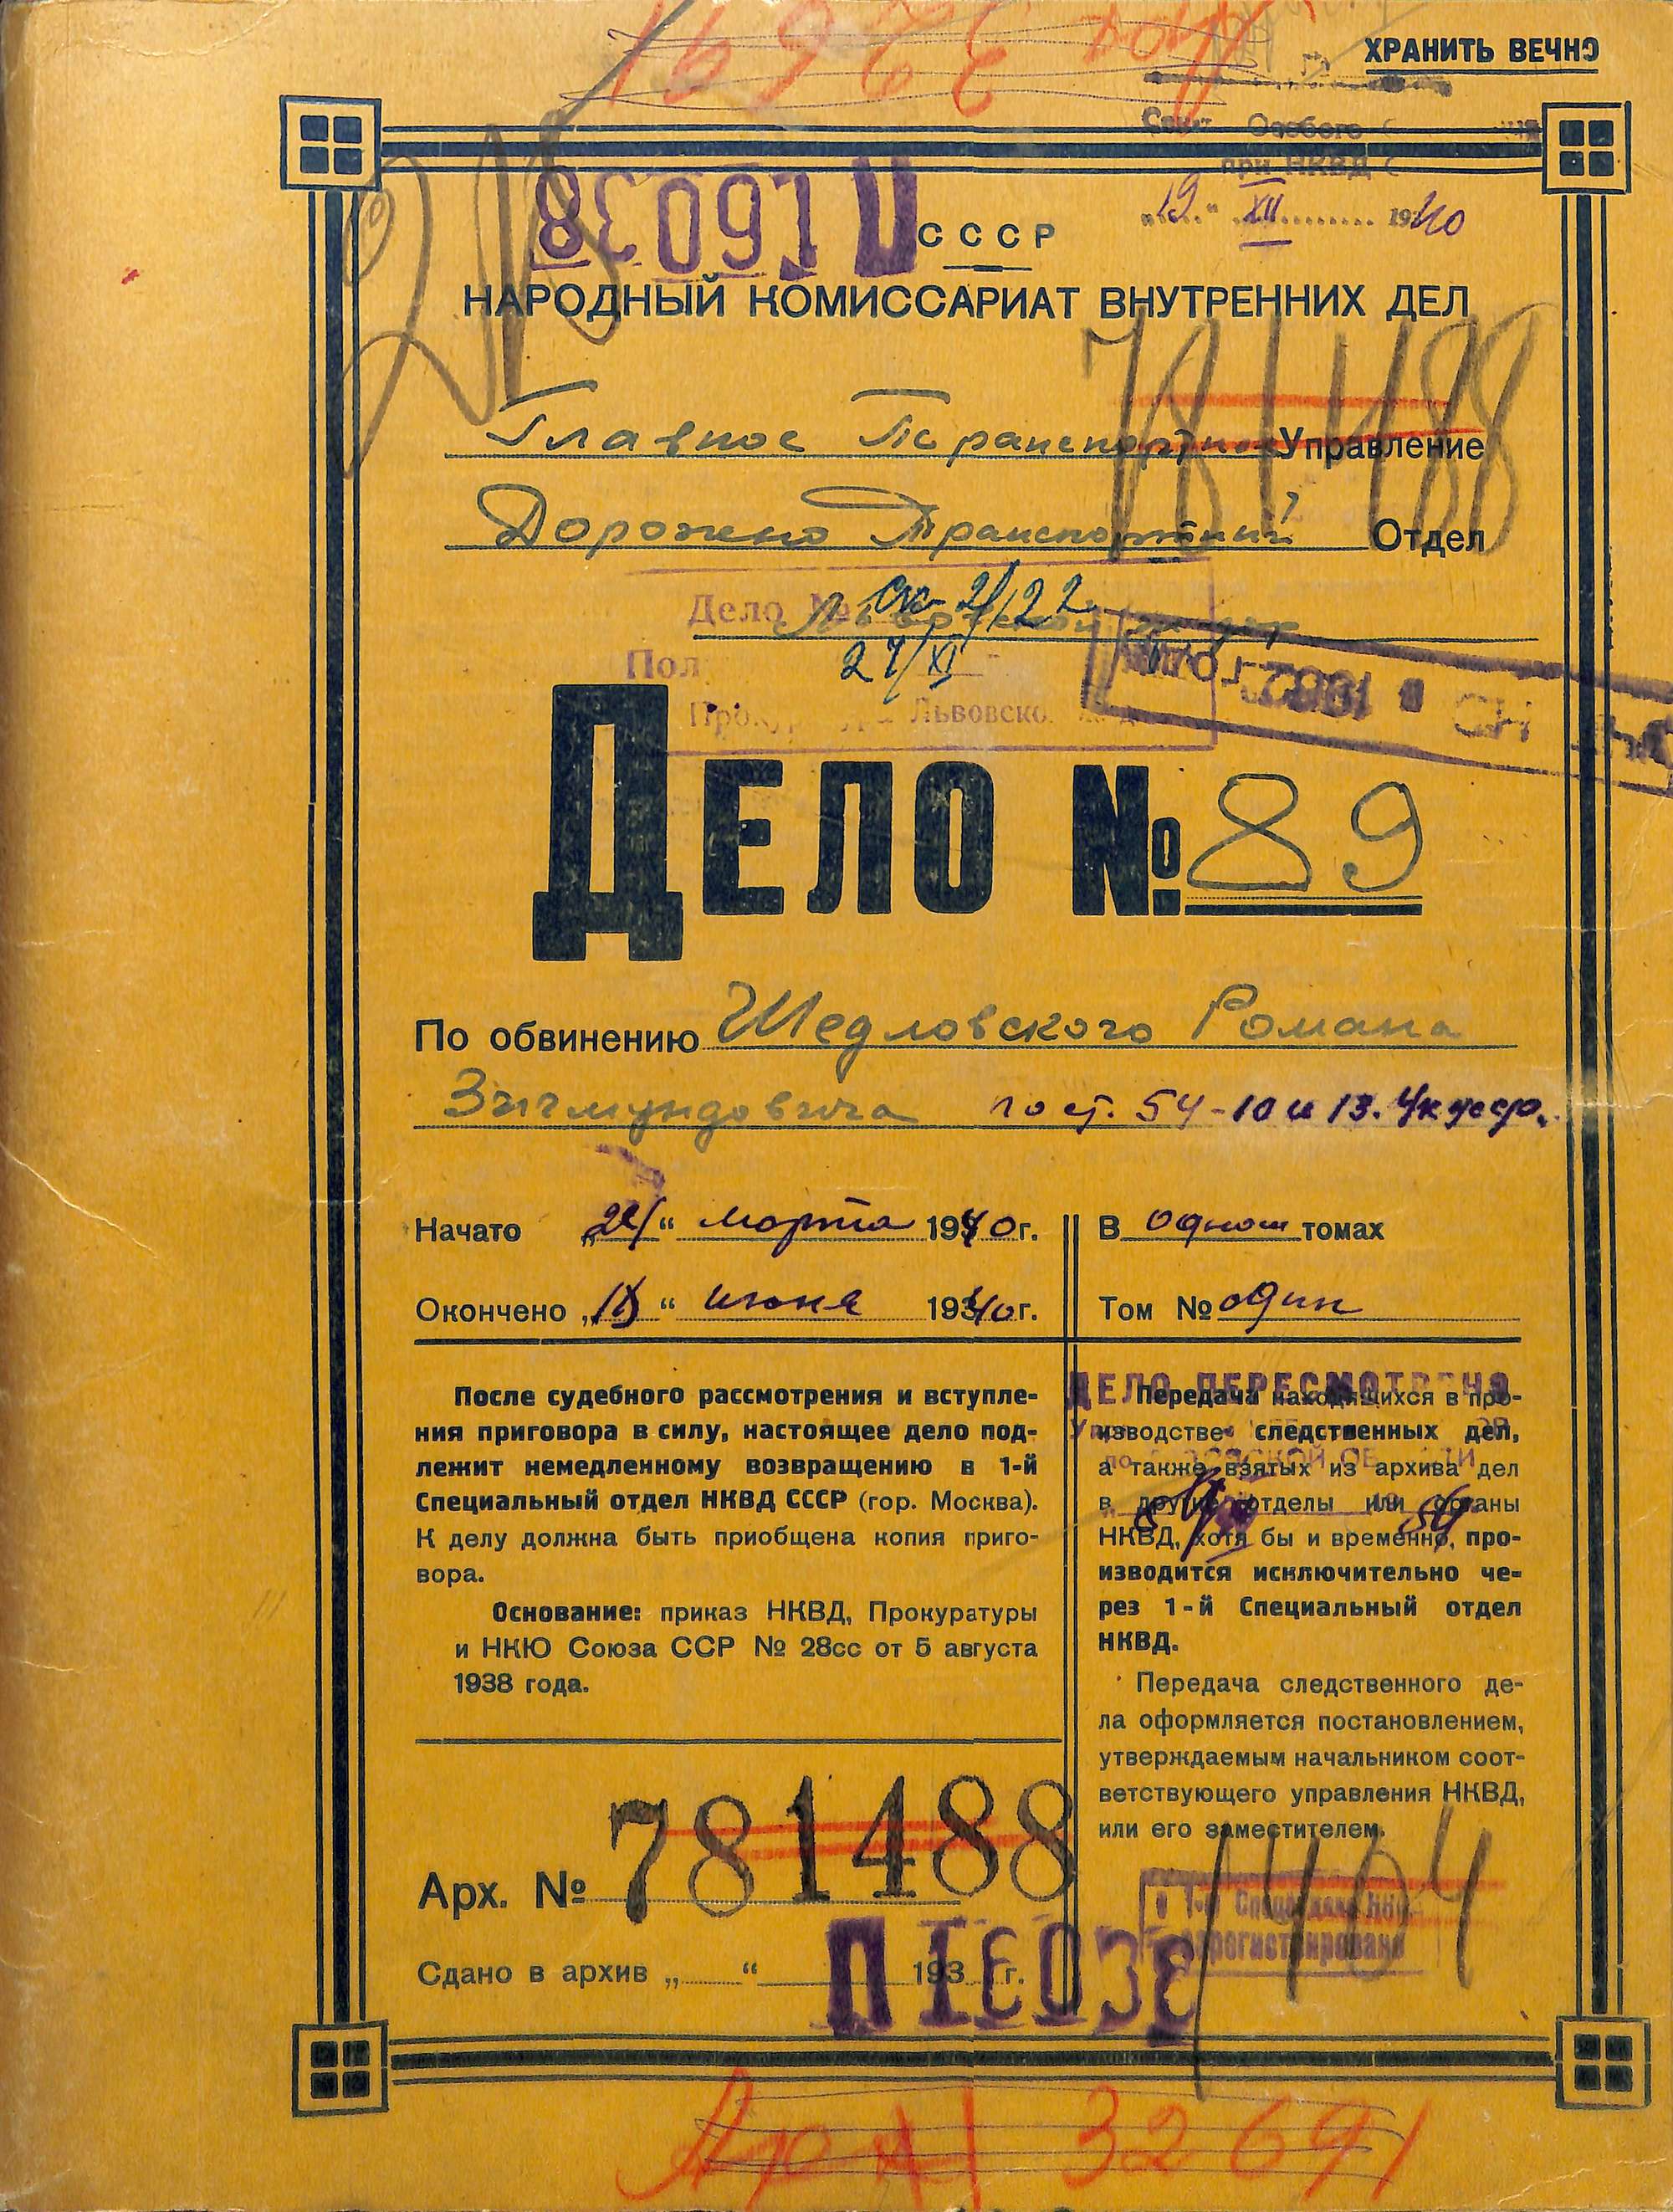 ХРАНИТЬ ВЕЧНО
Особого
при НКВД С
"19" XII 1940
П 16038
СССР
НАРОДНЫЙ КОМИССАРИАТ ВНУТРЕННИХ ДЕЛ
781488
Главное Транспортное Управление
Дорожно Транспортный Отдел
Дело №
Львовской
27/XI
Прокуратура Львовско
ДЕЛО № 89
По обвинению Шедловского Романа
Зигмундовича по ст. 54-10 и 13. Ук усср.
Начато „ “ марта 1940 г.
В одном томах
Окончено „ “ июня 1940 г.
Том № один
После судебного рассмотрения и вступле-
ния приговора в силу, настоящее дело под-
лежит немедленному возвращению в 1-й
Специальный отдел НКВД СССР (гор. Москва).
К делу должна быть приобщена копия приго-
вора.
Основание: приказ НКВД, Прокуратуры
и НКЮ Союза ССР № 28сс от 5 августа
1938 года.
ДЕЛО ПЕРЕСМОТРЕНО
Передача находящихся в про-
изводстве следственных дел,
а также взятых из архива дел
в другие отделы или органы
НКВД, хотя бы и временно, про-
изводится исключительно че-
рез 1-й Специальный отдел
НКВД.
Передача следственного де-
ла оформляется постановлением,
утверждаемым начальником соот-
ветствующего управления НКВД,
или его заместителем.
Арх. № 781488
1404
Спецотдел НКВД
Зарегистрировано
Сдано в архив „ “ 193 г.
Арх 32691